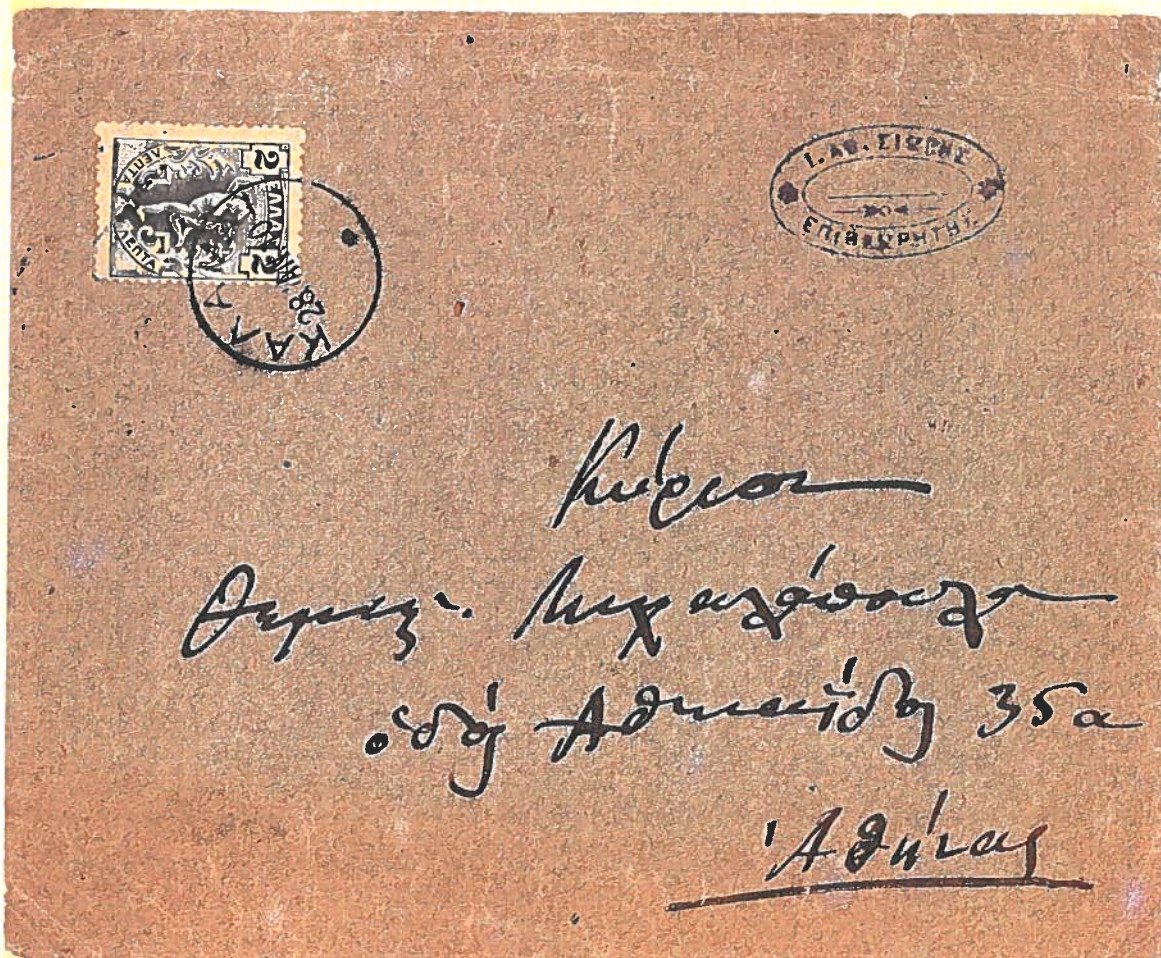 2 ΕΛΛΑΣ 2
ΛΕΠΤΑ ΛΕΠΤΑ
28
Ι. ΑΘ. ΣΙΩΡΗΣ
ΕΠΙΘΕΩΡΗΤΗΣ
Κύριον
Μιχαλόπουλον
ὁδός Ἀθηναΐδος 35α
Ἀθήνας